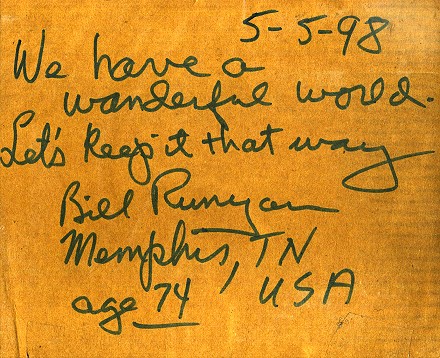 5-5-98
We have a
wonderful world.
Let's Keep it that way
Bill Runyan
Memphis, TN
age 74, USA